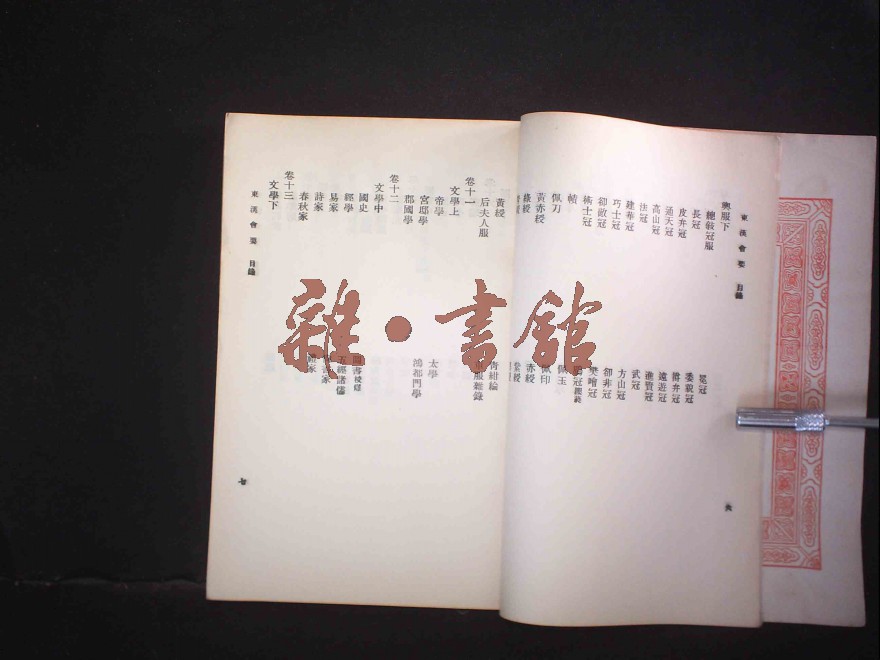 東漢會要 目錄 六
輿服下
總敍冠服 冕冠
長冠 委貌冠
皮弁冠 爵弁冠
通天冠 遠遊冠
高山冠 進賢冠
法冠 武冠
建華冠 方山冠
巧士冠 卻非冠
卻敵冠 樊噲冠
術士冠
幘 佩玉
佩刀 佩印
黃赤綬 赤綬
綠綬
黃綬 青紺綸
后夫人服 服雜錄
卷十一
文學上
帝學 太學
宮邸學 鴻都門學
郡國學
卷十二
文學中
國史
經學 五經諸儒
易家 家
詩家 家
春秋家
卷十三
文學下
東漢會要 目錄 七
雜·書館